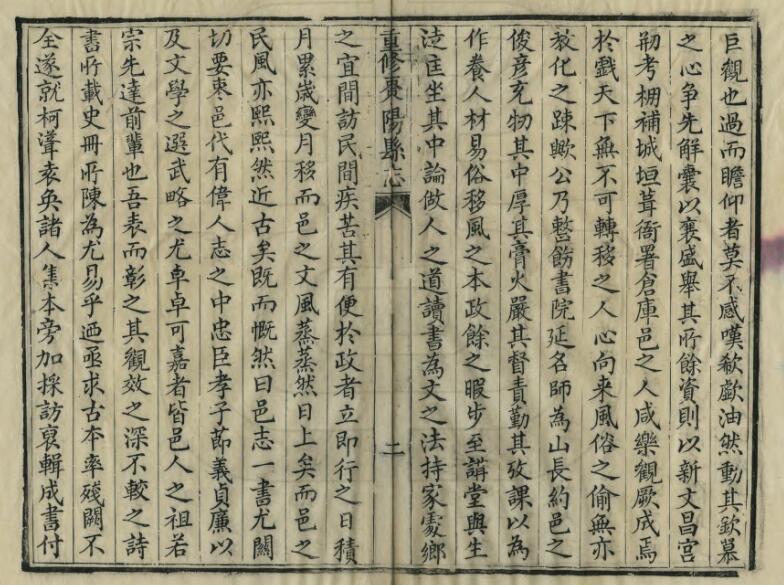 巨觀也過而瞻仰者莫不感嘆欷歔油然動其欽慕
之心爭先解囊以襄盛舉其所餘資則以新文昌宮
剏考棚補城垣葺衙署倉庫邑之人咸樂觀厥成焉
於戲天下無不可轉移之人心向来風俗之偷無亦
教化之踈歟公乃整飭書院延名師為山長約邑之
俊彦充物其中厚其膏火嚴其督責勤其攷課以為
作養人材易俗移風之本政餘之暇步至講堂與生
徒匡坐其中論做人之道讀書為文之法持家處鄉
重修棗陽縣志
二
之宜間訪民間疾苦其有便於政者立即行之日積
月累歲變月移而邑之文風蒸蒸然日上矣而邑之
民風亦熙熙然近古矣既而慨然曰邑志一書尤關
切要棗邑代有偉人志之中忠臣孝子節義貞廉以
及文學之選武略之尤卓卓可嘉者皆邑人之祖若
宗先達前輩也吾表而彰之其觀效之深不較之詩
書所載史冊所陳為尤易乎迺亟求古本率殘闕不
全遂就柯潭袁奐諸人集本旁加採訪裒輯成書付